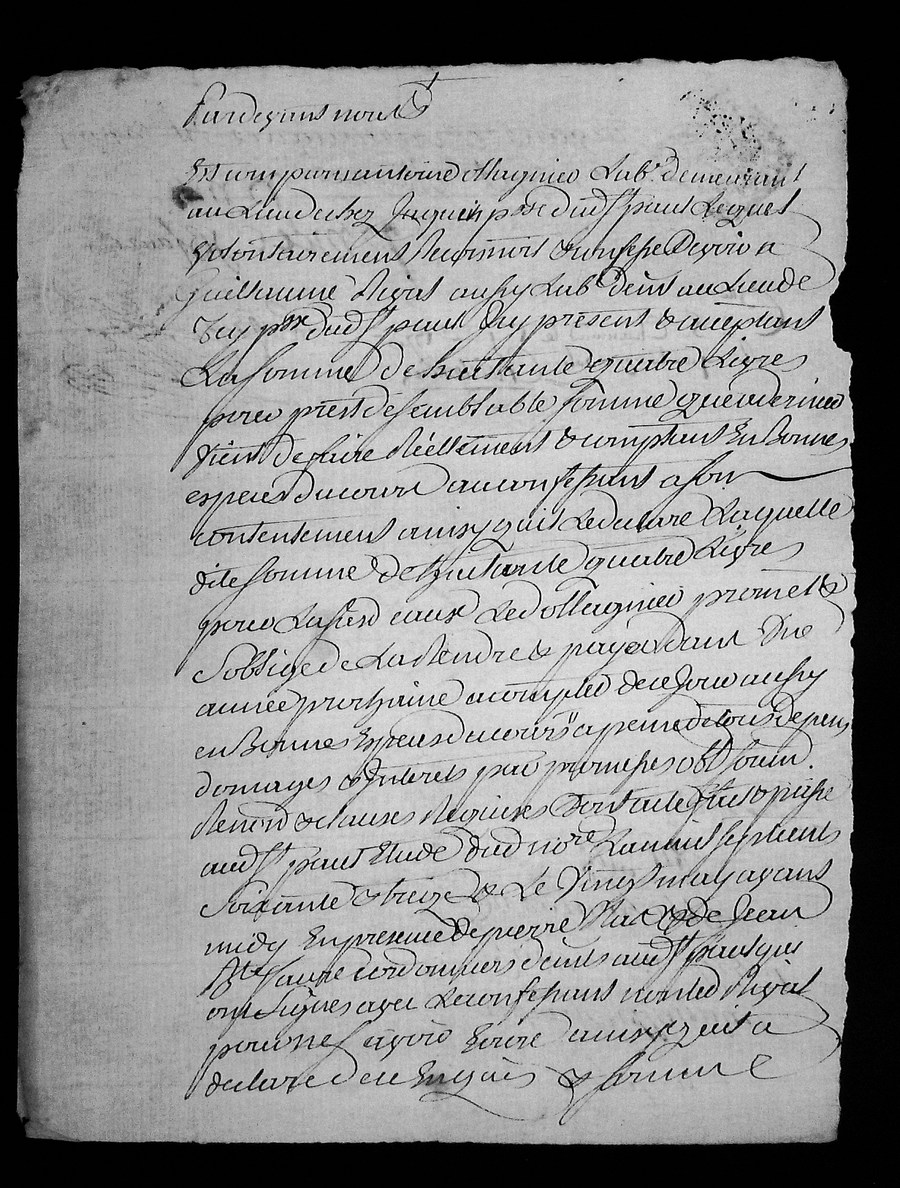 Pardevant nous &
Est comparu antoine Magnieu Labr demeurant
au Lieu de chez Jaquin psse dud St paul Lequel
volontairement Reconnoit & confesse Devoir a
Guillaume Rivat aussy Labr demt au Lieu de
psse dud St paul Icy présent & acceptant
La somme de huittante quatre Livres
pour prest de semblable somme que ce dernier
vient de faire Réellement & comptant En Bonnes
especes du cours au confessant a son
contentement ainsy quil Le declare Laquelle
dite somme de huittante quatre Livres
pour Les causes Led Magnieu promet &
soblige de La Rendre & payer dans Une
année prochaine a compter de ce Jour aussy
en Bonnes Especes du cours a peine de tous depens
domages & Interets par promesses obl soum.
Renon & clauses Requises Dont acte fait & passé
aud St paul Etude dud nore Lan mil sept cents
soixante & treize & Le Vingt may avant
midy En presence de pierre & de Jean
Bte faure cordonniers demts aud St paul qui
ont signés avec Le confessant non led Rivat
pour ne savoir Ecrire ainsy quil a
declare de ce Enquis & sommé